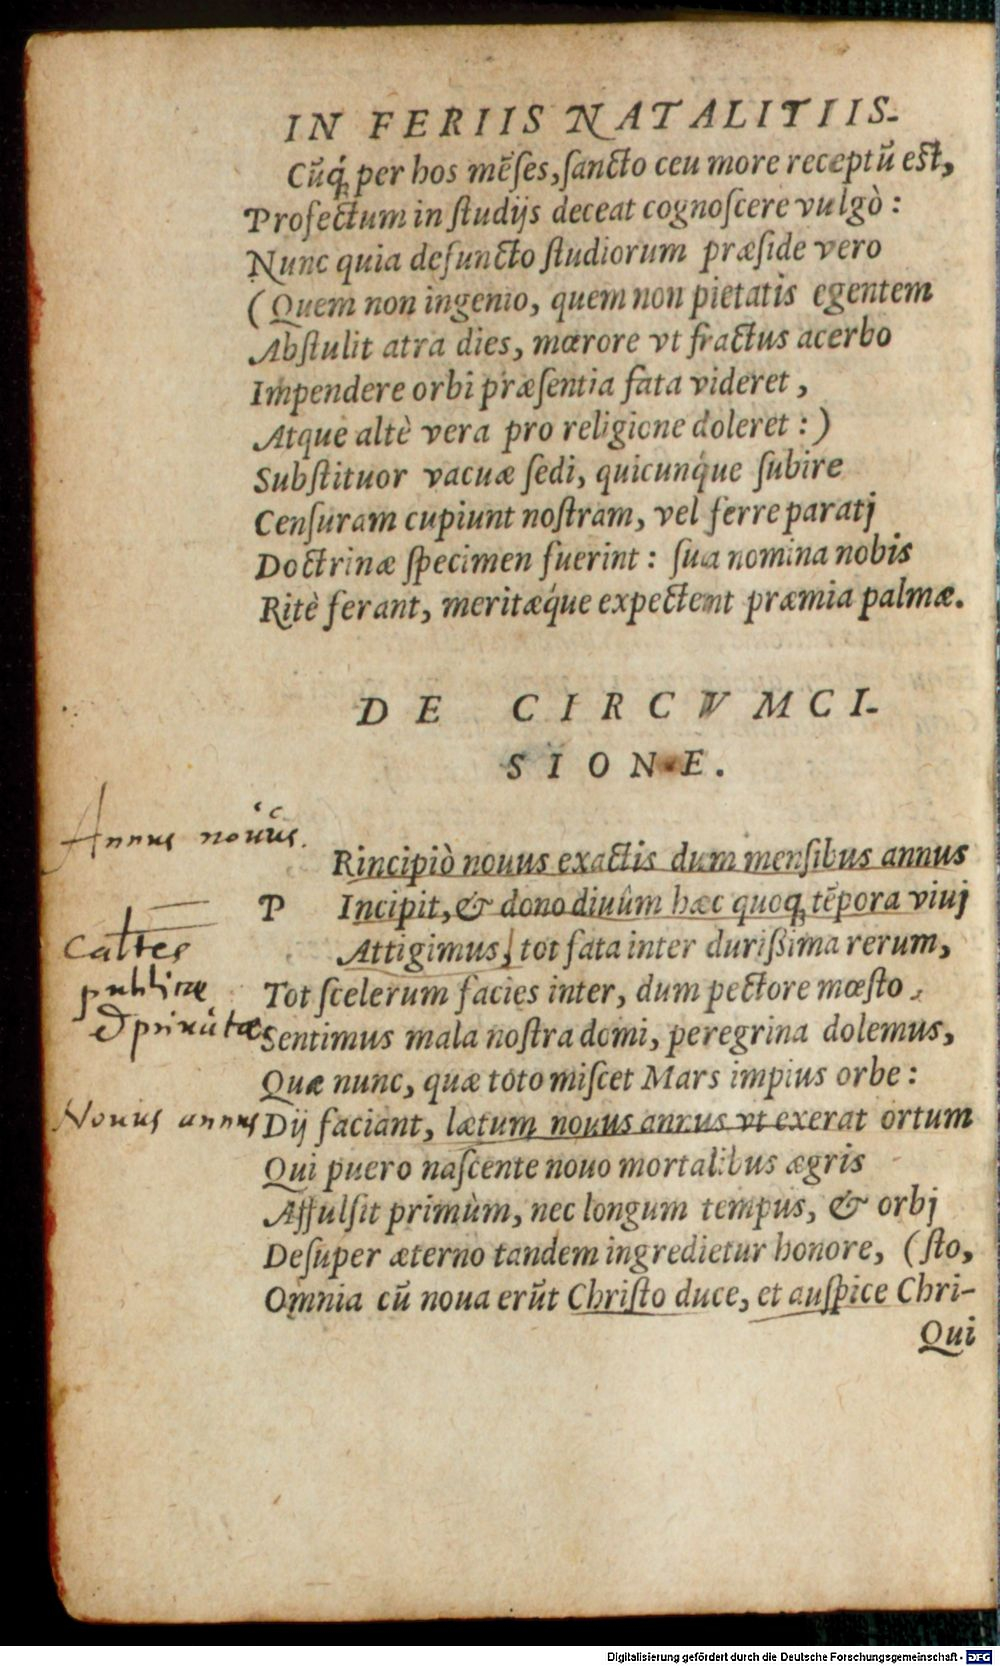 IN FERIIS NATALITIIS.
Cũq́ꝫ per hos mẽses, sancto ceu more receptũ est,
Profectum in studijs deceat cognoscere vulgò :
Nunc quia defuncto studiorum præside vero
(Quem non ingenio, quem non pietatis egentem
Abstulit atra dies, mœrore vt fractus acerbo
Impendere orbi præsentia fata videret,
Atque altè vera pro religione doleret :)
Substituor vacuæ sedi, quicunq́ue subire
Censuram cupiunt nostram, vel ferre paratj
Doctrinæ specimen fuerint : sua nomina nobis
Ritè ferant, meritæq́ue expectent præmia palmæ.
DE CIRCVMCI-
SIONE.
Annus nouus.
PRincipiò nouus exactis dum mensibus annus
Incipit, & dono diuûm hæc quoqꝫ tẽpora viuj
Attigimus, tot fata inter durißima rerum,
publicæ
Tot scelerum facies inter, dum pectore mœsto
& priuatæ
Sentimus mala nostra domi, peregrina dolemus,
Quæ nunc, quæ toto miscet Mars impius orbe :
Nouus annus
Dij faciant, lætum nouus annus vt exerat ortum
Qui puero nascente nouo mortalibus ægris
Affulsit primùm, nec longum tempus, & orbj
Desuper æterno tandem ingredietur honore, (sto,
Omnia cũ noua erũt Christo duce, et auspice Chri-
Qui
Digitalisierung gefördert durch die Deutsche Forschungsgemeinschaft - DFG